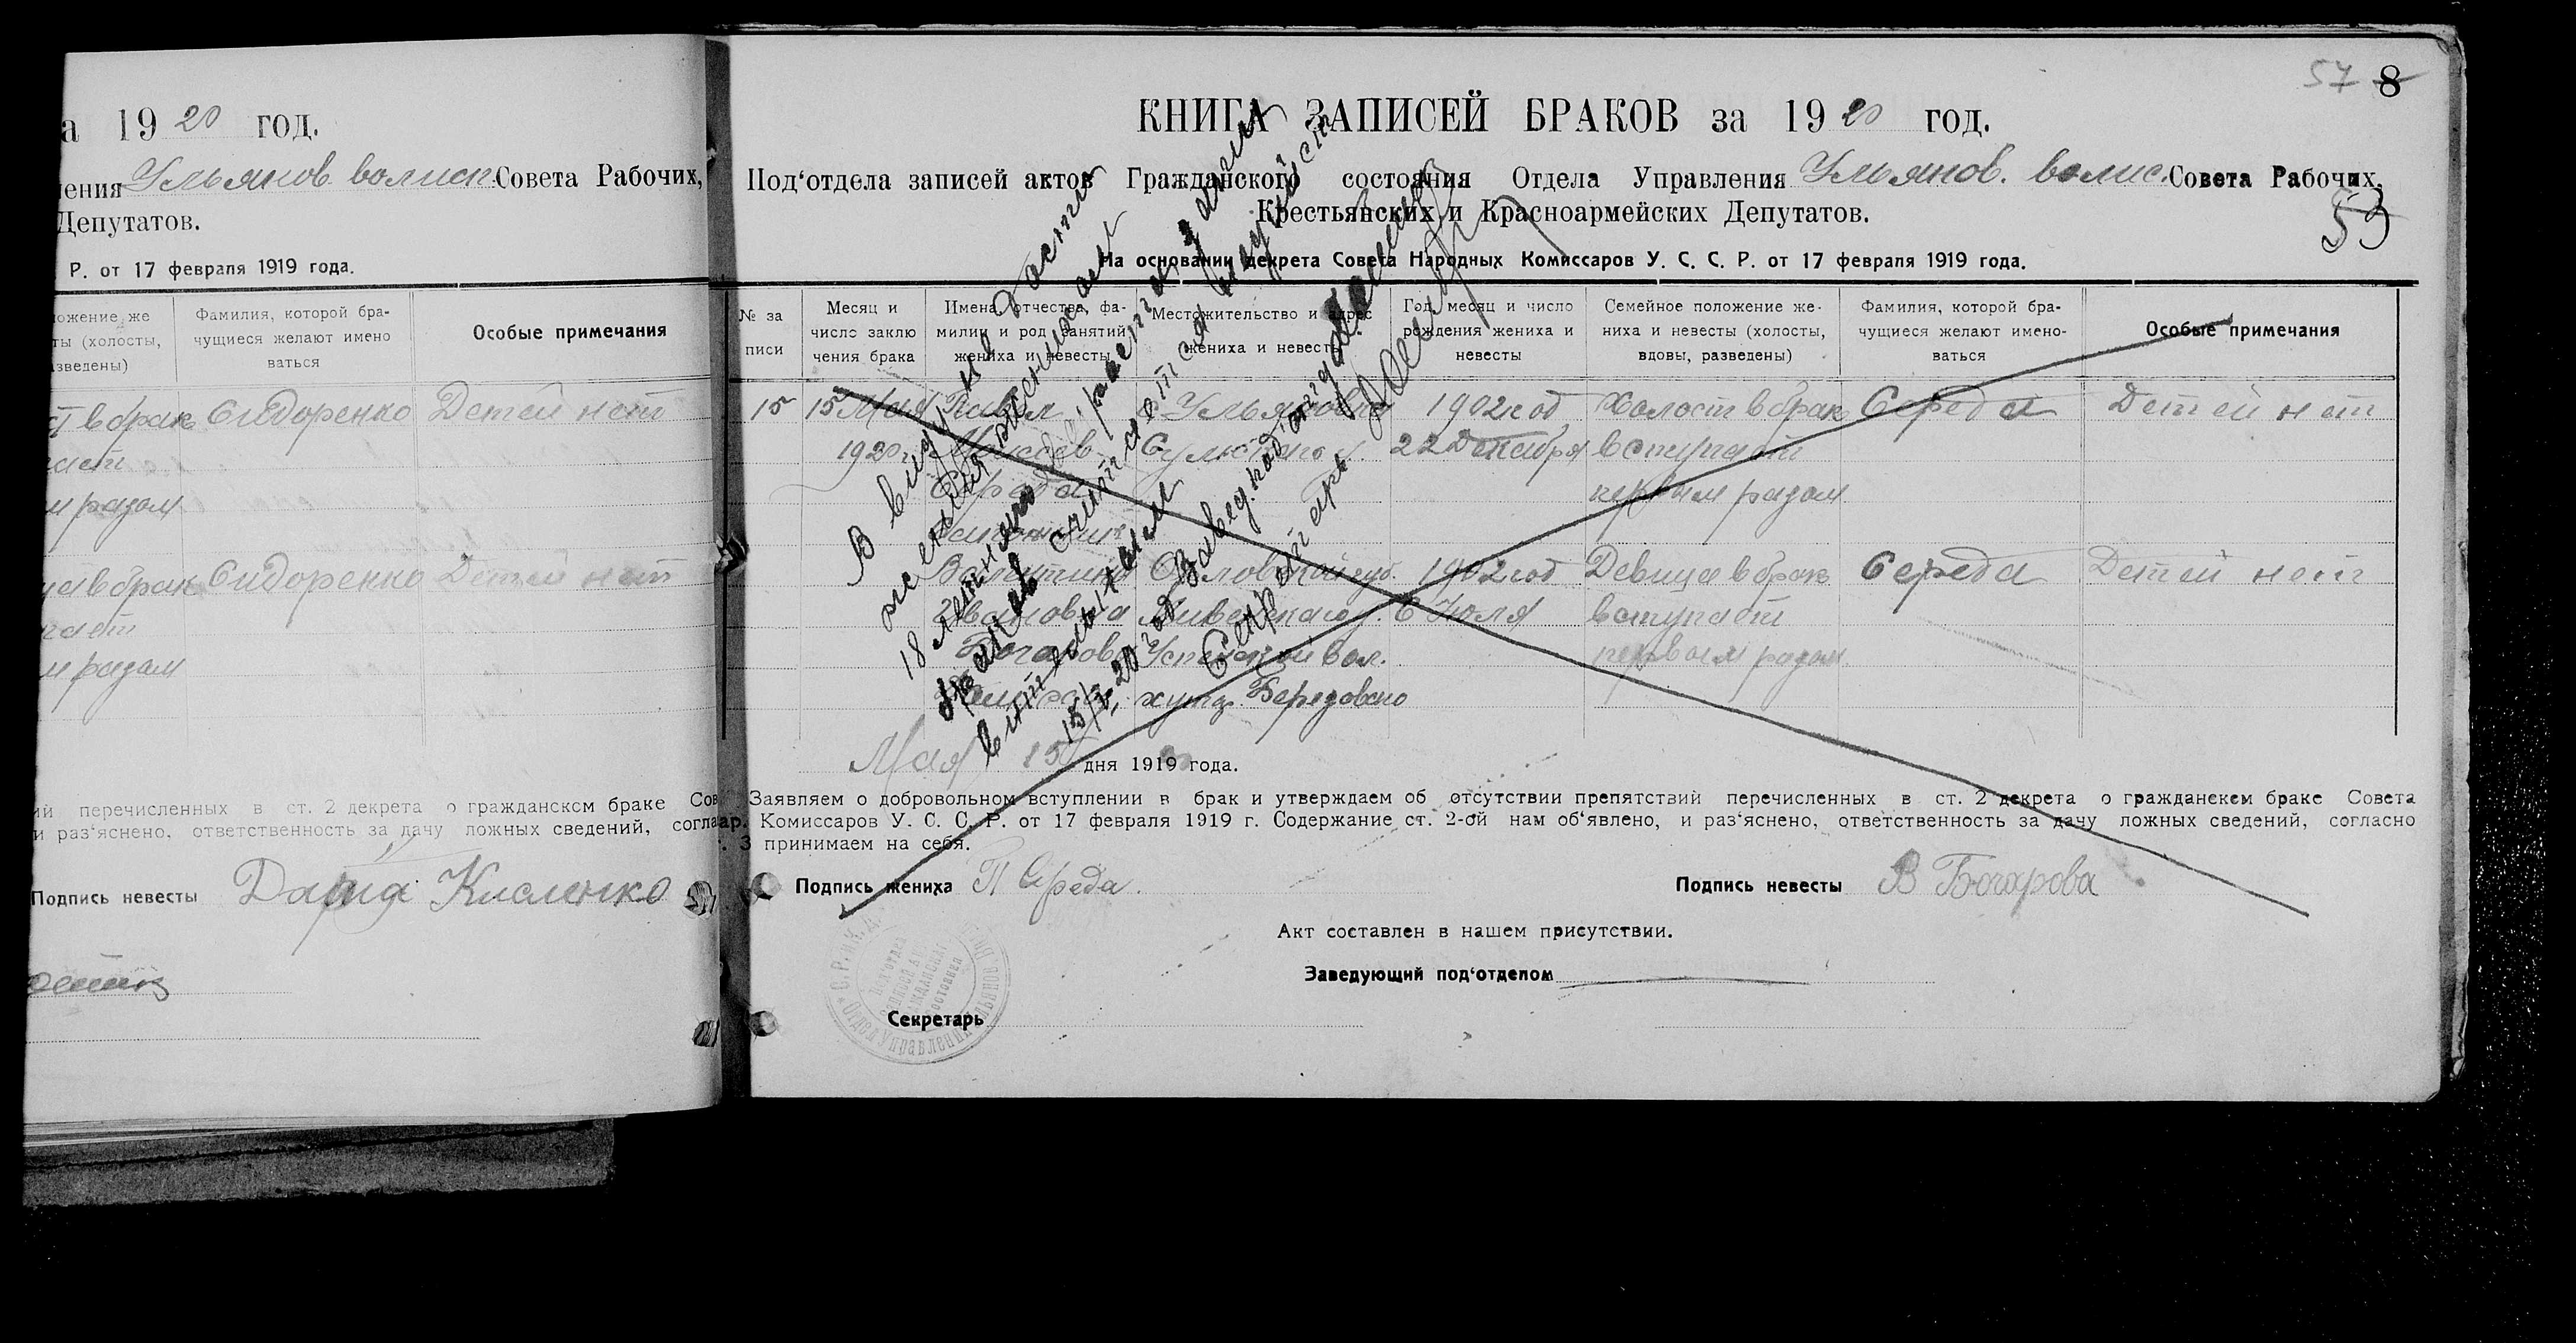 а 1920 год.
ления Ульянов. волисп. Совета Рабочих,
Депутатов.
Р. от 17 февраля 1919 года.
ложение же
ты (холосты,
азведены)
Фамилия, которой бра-
чущиеся желают имено
ваться
Особые примечания
ст в брак Сидоренко Детей нет
пает
м разом
ца в брак Сидоренко Детей нет
пает
м разом
ий перечисленных в ст. 2 декрета о гражданском браке Сов
и раз‘яснено, ответственность за дачу ложных сведений, согла
Подпись невесты Дарія Кисленко
57 8
КНИГА ЗАПИСЕЙ БРАКОВ за 1920 год.
Под‘отдела записей актов Гражданского состояния Отдела Управления Ульянов. волис. Совета Рабочих,
Крестьянских и Красноармейских Депутатов.
53
На основании декрета Совета Народных Комиссаров У. С. С. Р. от 17 февраля 1919 года.
№ за
писи
Месяц и
число заклю
чения брака
Имена, отчества, фа-
милии и род занятий
жениха и невесты
Местожительство и адрес
жениха и невесты
Год, месяц и число
рождения жениха и
невесты
Семейное положение же-
ниха и невесты (холосты,
вдовы, разведены)
Фамилия, которой бра-
чущиеся желают имено-
ваться
Особые примечания
15 15 Мая Павел Ульяновка 1902 год Холост в брак Середа Детей нет
1920 г. 22 Декабря вступает
Середа первым разом
Валентина Орловской губ. 1902 год Девица в брак Середа Детей нет
Ивановна Ливенского у. 6 Июля вступает
Богарова Успенской вол. первым разом
хутор Березовско
В виду не
жениха
18 летняго
брак считается
15/V 20 год Завед. под‘отдел.
Секретарь
Мая 15 дня 1919 года.
Заявляем о добровольном вступлении в брак и утверждаем об отсутствии препятствий перечисленных в ст. 2 декрета о гражданском браке Совета
ар. Комиссаров У. С. С. Р. от 17 февраля 1919 г. Содержание ст. 2-ой нам об‘явлено, и раз‘яснено, ответственность за дачу ложных сведений, согласно
. 3 принимаем на себя.
Подпись жениха П Середа. Подпись невесты В Богарова
Акт составлен в нашем присутствии.
Заведующий под‘отделом
Секретарь